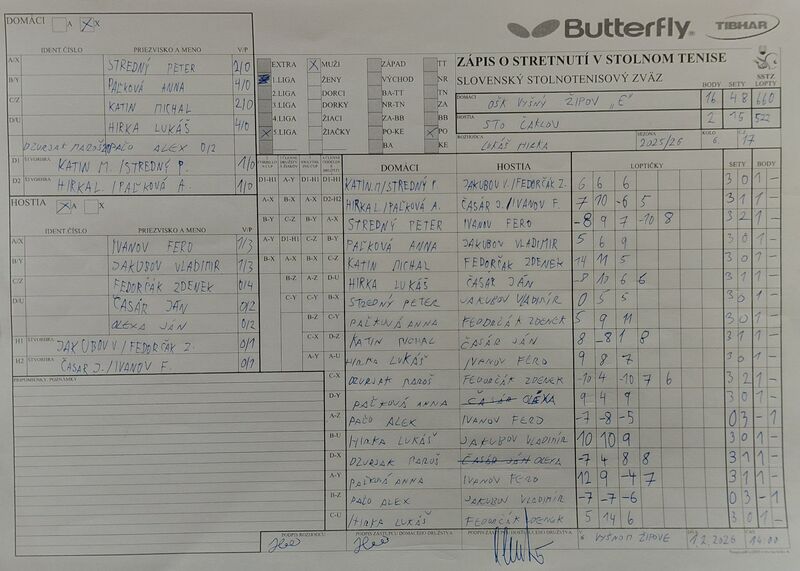 DOMÁCI A X
Butterfly TIBHAR
ZÁPIS O STRETNUTÍ V STOLNOM TENISE
SLOVENSKÝ STOLNOTENISOVÝ ZVÄZ
BODY SETY LOPTY
DOMÁCI OŠK VYŠNÝ ŽIPOV „E" 16 48 660
HOSTIA STO ČAKLOV 2 15 522
ROZHODCA LUKÁŠ HIRKA SEZÓNA 2025/26 KOLO 17
IDENT.ČÍSLO PRIEZVISKO A MENO V/P
A/X STREDNÝ PETER 2/0
B/Y PAĽKOVÁ ANNA 4/0
C/Z KATIN MICHAL 2/0
D/U HIRKA LUKÁŠ 4/0
DZURJAK MAROŠ PAČO ALEX 0/2
D1 ŠTVORHRA KATIN M./STREDNÝ P. 1/0
D2 ŠTVORHRA HIRKA L./PAĽKOVÁ A. 1/0
EXTRA X MUŽI ZÁPAD TT
1.LIGA ŽENY VÝCHOD NR
2.LIGA DORCI BA-TT TN
3.LIGA DORKY NR-TN ZA
4.LIGA ŽIACI ZA-BB BB
5.LIGA ŽIAČKY PO-KE PO
BA KE
HOSTIA A X
IDENT.ČÍSLO PRIEZVISKO A MENO V/P
A/X IVANOV FERO 1/3
B/Y JAKUBOV VLADIMIR 1/3
C/Z FEDORČÁK ZDENEK 0/4
D/U ČASÁR JÁN 0/2
OLEXA JÁN 0/2
H1 ŠTVORHRA JAKUBOV V./FEDORČÁK Z. 0/1
H2 ŠTVORHRA ČASÁR J./IVANOV F. 0/1
PRIPOMIENKY, POZNÁMKY
DOMÁCI HOSTIA LOPTIČKY SETY BODY
KATIN M/STREDNÝ P. JAKUBOV V./FEDORČÁK Z. 6 6 6 3 0 1 -
HIRKA L./PAĽKOVÁ A. ČASÁR J./IVANOV F. 7 10 -6 5 3 1 1 -
STREDNÝ PETER IVANOV FERO -8 9 7 -10 8 3 2 1 -
PAĽKOVÁ ANNA JAKUBOV VLADIMIR 5 6 9 3 0 1 -
KATIN MICHAL FEDORČÁK ZDENEK 14 11 5 3 0 1 -
HIRKA LUKÁŠ ČASÁR JÁN -8 10 6 6 3 1 1 -
STREDNÝ PETER JAKUBOV VLADIMÍR 0 5 5 3 0 1 -
PAĽKOVÁ ANNA FEDORČÁK ZDENEK 5 9 11 3 0 1 -
KATIN MICHAL ČASÁR JÁN 8 -8 1 8 3 1 1 -
HIRKA LUKÁŠ IVANOV FERO 9 8 7 3 0 1 -
C-X DZURJAK MAROŠ FEDORČÁK ZDENEK -10 4 -10 7 6 3 2 1 -
D-Y PAĽKOVÁ ANNA ČASÁR OLEXA 9 4 9 3 0 1 -
A-Z PAČO ALEX IVANOV FERO -7 -8 -5 0 3 - 1
B-U HIRKA LUKÁŠ JAKUBOV VLADIMÍR 10 10 9 3 0 1 -
D-X DZURJAK MAROŠ ČASÁR JÁN OLEXA -7 4 8 8 3 1 1 -
A-Y PAĽKOVÁ ANNA IVANOV FERO 12 9 -4 7 3 1 1 -
B-Z PAČO ALEX JAKUBOV VLADIMIR -7 -7 -6 0 3 - 1
C-U HIRKA LUKÁŠ FEDORČÁK ZDENEK 5 14 6 3 0 1 -
PODPIS ROZHODCU PODPIS ZÁSTUPCU DOMÁCEHO DRUŽSTVA
V VYŠNOM ŽIPOVE DŇA 1.2.2026 ČAS 14:00